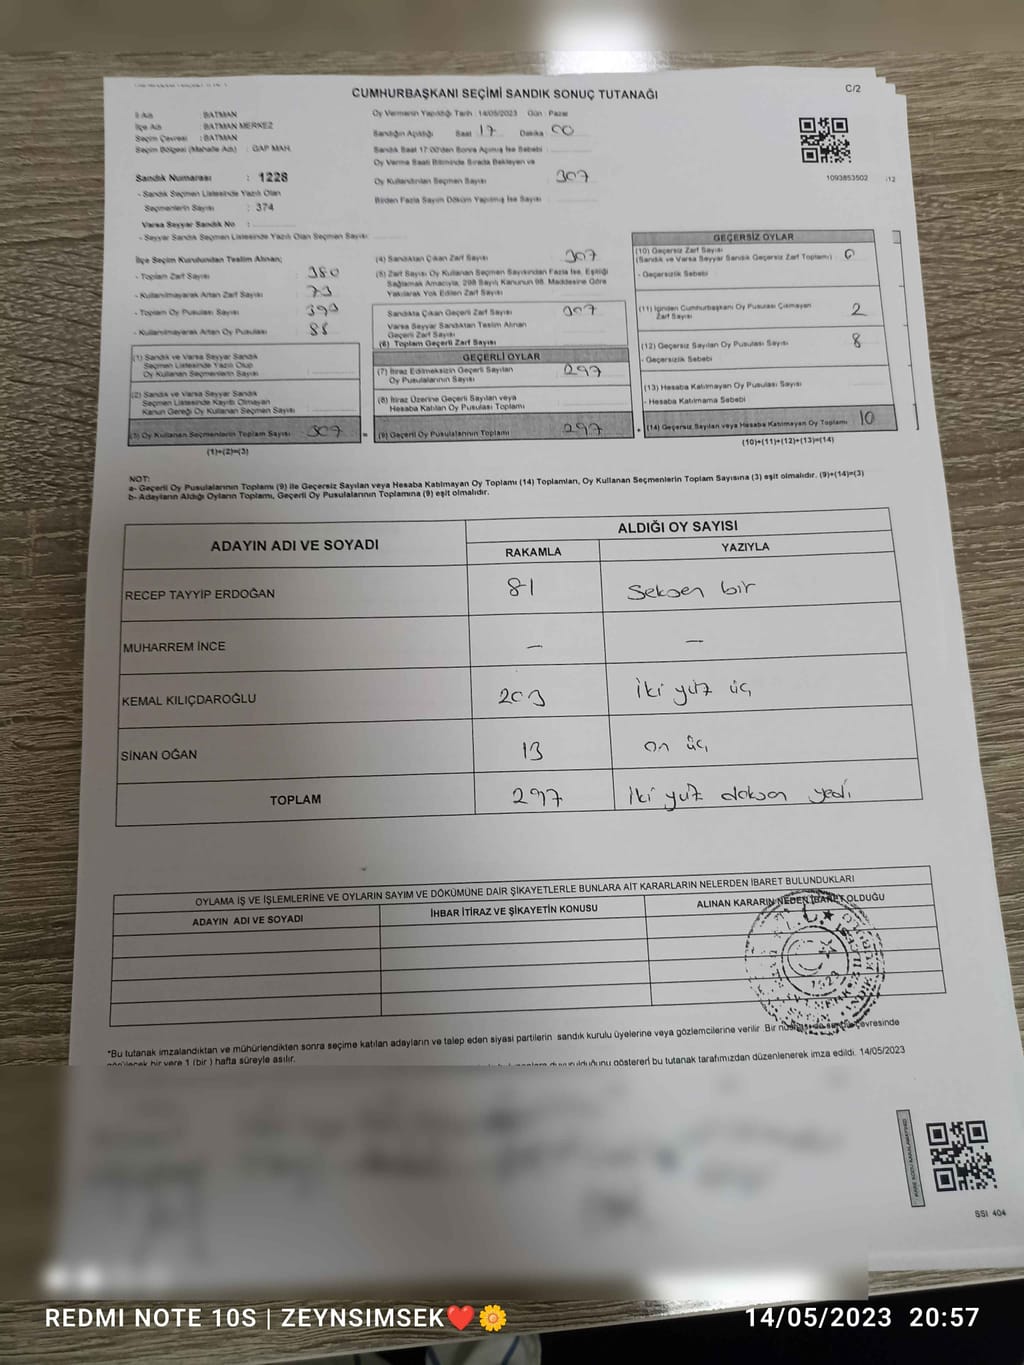 CUMHURBAŞKANI SEÇİMİ SANDIK SONUÇ TUTANAĞI
C/2
İl Adı : BATMAN
İlçe Adı : BATMAN MERKEZ
Seçim Çevresi : BATMAN
Seçim Bölgesi (Mahalle Adı) : GAP MAH.
Sandık Numarası : 1228
- Sandık Seçmen Listesinde Yazılı Olan
Seçmenlerin Sayısı : 374
Varsa Seyyar Sandık No :
- Seyyar Sandık Seçmen Listesinde Yazılı Olan Seçmen Sayısı
Oy Vermenin Yapıldığı Tarih : 14/05/2023 Gün : Pazar
Sandığın Açıldığı Saat 17 Dakika 00
Sandık Saat 17:00'den Sonra Açılmış İse Sebebi :
Oy Verme Saati Bitiminde Sırada Bekleyen ve
Oy Kullandırılan Seçmen Sayısı 307
Birden Fazla Sayım Döküm Yapılmış İse Sayısı :
1093853502 /12
İlçe Seçim Kurulundan Teslim Alınan;
- Toplam Zarf Sayısı 380
- Kullanılmayarak Artan Zarf Sayısı 73
- Toplam Oy Pusulası Sayısı
- Kullanılmayarak Artan Oy Pusulası 88
(1) Sandık ve Varsa Seyyar Sandık
Seçmen Listesinde Yazılı Olup
Oy Kullanan Seçmenlerin Sayısı
(2) Sandık ve Varsa Seyyar Sandık
Seçmen Listesinde Kayıtlı Olmayan
Kanun Gereği Oy Kullanan Seçmen Sayısı
(3) Oy Kullanan Seçmenlerin Toplam Sayısı 307
(1)+(2)=(3)
(4) Sandıktan Çıkan Zarf Sayısı 307
(5) Zarf Sayısı Oy Kullanan Seçmen Sayısından Fazla İse, Eşitliği
Sağlamak Amacıyla, 298 Sayılı Kanunun 98. Maddesine Göre
Yakılarak Yok Edilen Zarf Sayısı
Sandıkta Çıkan Geçerli Zarf Sayısı 307
Varsa Seyyar Sandıktan Teslim Alınan
Geçerli Zarf Sayısı
(6) Toplam Geçerli Zarf Sayısı
GEÇERLİ OYLAR
(7) İtiraz Edilmeksizin Geçerli Sayılan
Oy Pusulalarının Sayısı 297
(8) İtiraz Üzerine Geçerli Sayılan veya
Hesaba Katılan Oy Pusulası Toplamı
= (9) Geçerli Oy Pusulalarının Toplamı 297
GEÇERSİZ OYLAR
(10) Geçersiz Zarf Sayısı
(Sandık ve Varsa Seyyar Sandık Geçersiz Zarf Toplamı) : 0
- Geçersizlik Sebebi
(11) İçinden Cumhurbaşkanı Oy Pusulası Çıkmayan
Zarf Sayısı 2
(12) Geçersiz Sayılan Oy Pusulası Sayısı 8
- Geçersizlik Sebebi
(13) Hesaba Katılmayan Oy Pusulası Sayısı
- Hesaba Katılmama Sebebi
+ (14) Geçersiz Sayılan veya Hesaba Katılmayan Oy Toplamı 10
(10)+(11)+(12)+(13)=(14)
NOT:
a- Geçerli Oy Pusulalarının Toplamı (9) ile Geçersiz Sayılan veya Hesaba Katılmayan Oy Toplamı (14) Toplamları, Oy Kullanan Seçmenlerin Toplam Sayısına (3) eşit olmalıdır. (9)+(14)=(3)
b- Adayların Aldığı Oyların Toplamı, Geçerli Oy Pusulalarının Toplamına (9) eşit olmalıdır.
ADAYIN ADI VE SOYADI
ALDIĞI OY SAYISI
RAKAMLA YAZIYLA
RECEP TAYYİP ERDOĞAN 81 Seksen bir
MUHARREM İNCE — —
KEMAL KILIÇDAROĞLU 203 iki yüz üç
SİNAN OĞAN 13 on üç
TOPLAM 297 iki yüz doksan yedi
OYLAMA İŞ VE İŞLEMLERİNE VE OYLARIN SAYIM VE DÖKÜMÜNE DAİR ŞİKAYETLERLE BUNLARA AİT KARARLARIN NELERDEN İBARET BULUNDUKLARI
ADAYIN ADI VE SOYADI İHBAR İTİRAZ VE ŞİKAYETİN KONUSU ALINAN KARARIN NEDEN İBARET OLDUĞU
*Bu tutanak imzalandıktan ve mühürlendikten sonra seçime katılan adayların ve talep eden siyasi partilerin sandık kurulu üyelerine veya gözlemcilerine verilir. Bir çevresinde
görülecek bir yere 1 (bir) hafta süreyle asılır.
duyurulduğunu gösteren bu tutanak tarafımızdan düzenlenerek imza edildi. 14/05/2023
SSI 404
REDMI NOTE 10S | ZEYNSIMSEK❤️🌼
14/05/2023 20:57